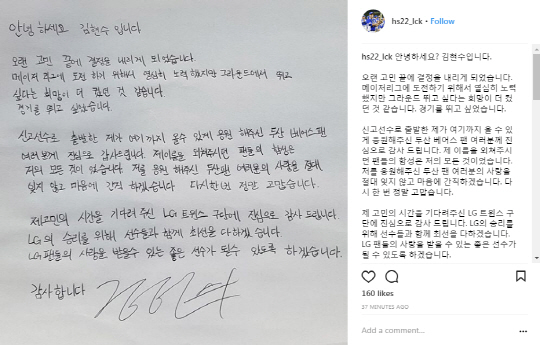 안녕하세요 김현수 입니다
오랜 고민 끝에 결정을 내리게 되었습니다.
메이저리그에 도전 하기 위해서 열심히 노력했지만 그라운드에서 뛰고
싶다는 희망이 더 컸던 것 같습니다.
경기를 뛰고 싶었습니다.
신고선수로 출발한 제가 여기까지 올수 있게 응원 해주신 두산 베어스 팬
여러분께 진심으로 감사드립니다. 제이름을 외쳐주시면 팬들의 함성은
저의 모든 것이 었습니다. 저를 응원 해주신 두산팬 여러분의 사랑을 절대
잊지 않고 마음에 간직 하겠습니다. 다시한번 정말 고맙습니다.
제고민의 시간을 기다려 주신 LG 트윈스 구단에 진심으로 감사 드립니다.
LG의 승리를 위해 선수들과 함께 최선을 다하겠습니다.
LG팬들의 사랑을 받을수 있는 좋은 선수가 될수 있도록 하겠습니다.
감사합니다
hs22_lck • Follow
hs22_lck 안녕하세요? 김현수입니다.
오랜 고민 끝에 결정을 내리게 되었습니다.
메이저리그에 도전하기 위해서 열심히 노력
했지만 그라운드 뛰고 싶다는 희망이 더 컸
던 것 같습니다. 경기를 뛰고 싶었습니다.
신고선수로 출발한 제가 여기까지 올 수 있
게 응원해주신 두산 베어스 팬 여러분께 진
심으로 감사 드립니다. 제 이름을 외쳐주시
면 팬들의 함성은 저의 모든 것이었습니다.
저를 응원해주신 두산 팬 여러분의 사랑을
절대 잊지 않고 마음에 간직하겠습니다. 다
시 한 번 정말 고맙습니다.
제 고민의 시간을 기다려주신 LG 트윈스 구
단에 진심으로 감사 드립니다. LG의 승리를
위해 선수들과 함께 최선을 다하겠습니다.
LG 팬들의 사랑을 받을 수 있는 좋은 선수가
될 수 있도록 하겠습니다.
160 likes
37 MINUTES AGO
Add a comment...